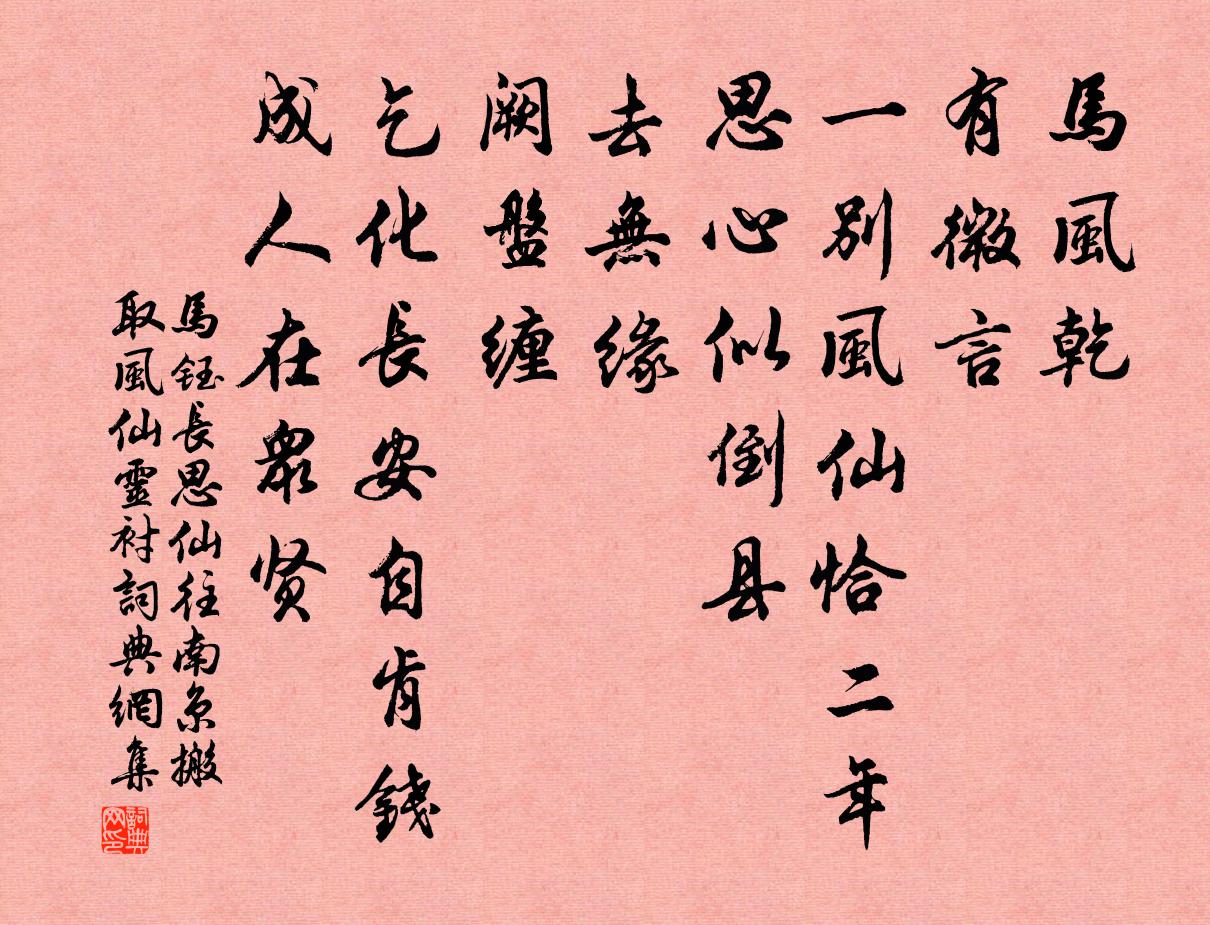 馬風乾
有微言
一别風仙恰二年
思心似倒县
去無緣
阙盤缠
乞化長安自肯錢
成人在眾贤
馬鈺長思仙往南京搬
取風仙靈衬詞典網集
詞典
网印